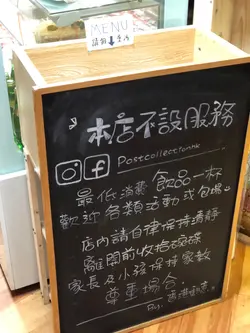 MENU
本店不設服務
Postcollectionhk
最低消費 飲品一杯
歡迎各類活動或包場
店內請自律保持清靜
離開前收拾碗碟
家長及小孩保持家教
尊重場合